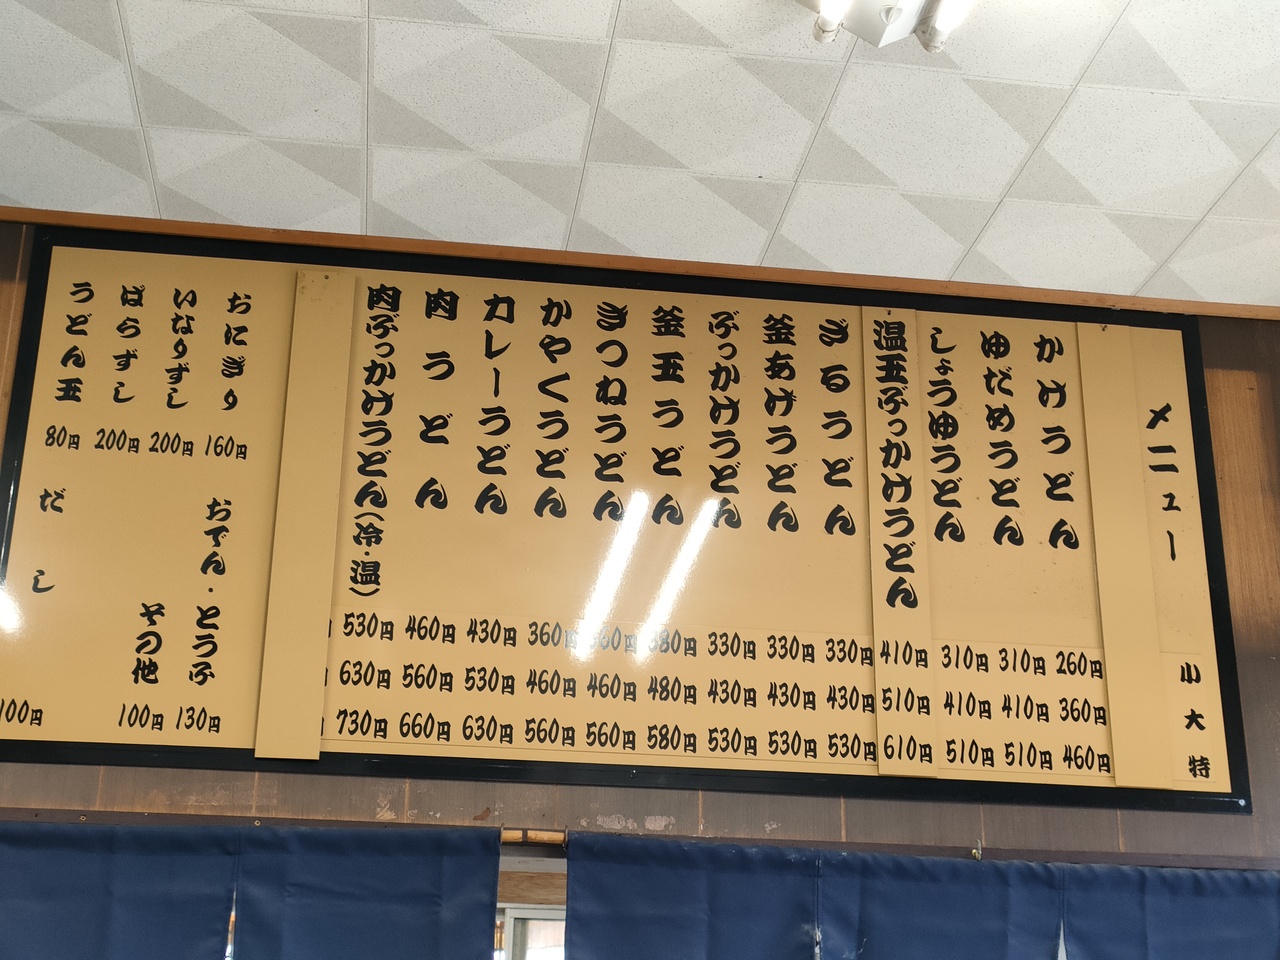 メニュー 小 大 特
かけうどん 260円 360円 460円
ゆだめうどん 310円 410円 510円
しょうゆうどん 310円 410円 510円
温玉ぶっかけうどん 410円 510円 610円
ざるうどん 330円 430円 530円
釜あげうどん 330円 430円 530円
ぶっかけうどん 330円 430円 530円
釜玉うどん 380円 480円 580円
きつねうどん 360円 460円 560円
かやくうどん 360円 460円 560円
カレーうどん 430円 530円 630円
肉うどん 460円 560円 660円
肉ぶっかけうどん(冷・温) 530円 630円 730円
おにぎり 160円
おでん・とうふ 130円
いなりずし 200円
その他 100円
ばらずし 200円
うどん玉 80円
だし 100円